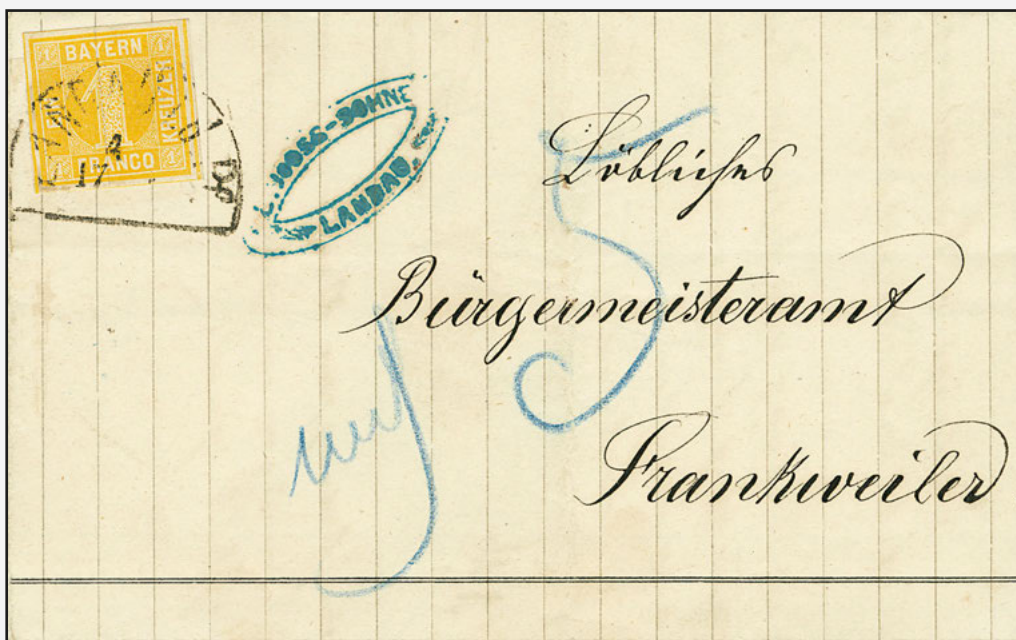 1 BAYERN 1
EIN 1 KREUZER
1 FRANCO 1
17
JOOSS-SÖHNE
LANDAU.
Löbliches
Bürgermeisteramt
Frankweiler
5